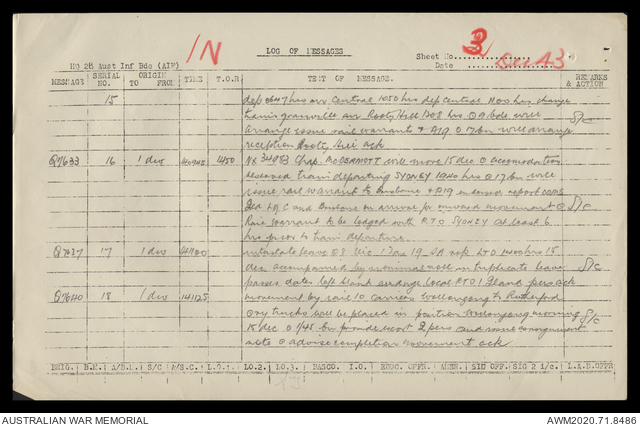 1N
LOG OF MESSAGES
HQ 28 Aust Inf Bde (AIF)
Sheet No. 3
Date Dec 43
MESSAGE SERIAL NO. ORIGIN TO FROM TIME T.O.R TEXT OF MESSAGE. REMARKS & ACTION
15 dep 0647 hrs arr Central 1050 hrs dep Central 1100 hrs change
trains Granville arr Rooty Hill 1308 hrs O Bde will
arrange issue rail warrants + A19 O 17 bn will arrange S/C
reception Rooty Hill ack
Q7633 16 1 div 140945 1450 NX 34983 Chap. McDERMOTT will move 15 dec O accomodation
reserved train departing SYDNEY 1940 hrs O 17 bn will
issue rail warrant to Brisbane + A19 report
L of C and Brisbane on arrival for onward movement O S/C
Rail warrant to be lodged with RTO SYDNEY at least 6
hrs prior to train departure
Q7637 17 1 div 141100 interstate leave 19 SA rep LTD 1400 hrs 15
dec accompanied by nominal roll in triplicate leave S/C
passes dates left blank local RTO ack
Q7640 18 1 div 141125 movement by rail 10 carriers Wollongong to Rutherford
O rly trucks will be placed in position Wollongong morning S/C
15 dec O 1/45 bn provide escort 2 pers and issue consignment
note O advise completion movement ack
BRIG. B.M. A/B.M. S/C A/S.C. L.O.1. LO.2. LO.3. BASCO. I.O. EDUC. OFFR. AMEN. SIG OFF. SIG 2 i/c. L.A.D. OFFR
AUSTRALIAN WAR MEMORIAL
AWM2020.71.8486